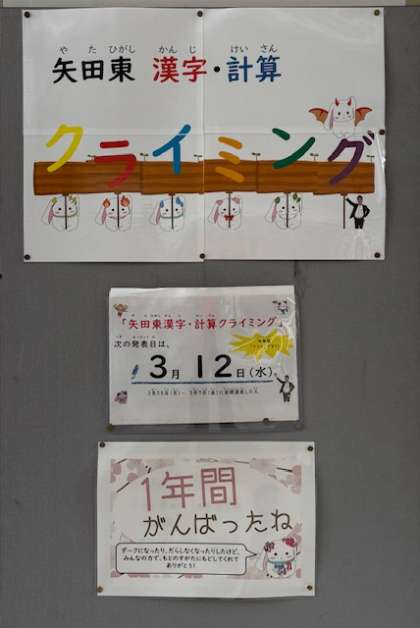 や た ひがし かん じ けい さん
矢田東 漢字・計算
クライミング
「矢田東漢字・計算クライミング」
次の発表日は、
3月 12日(水)
1年間
がんばったね
ダークになったり、だらしなくなったりしたけど、
みんなの力で、もとのすがたにもどしてくれて
ありがとう!